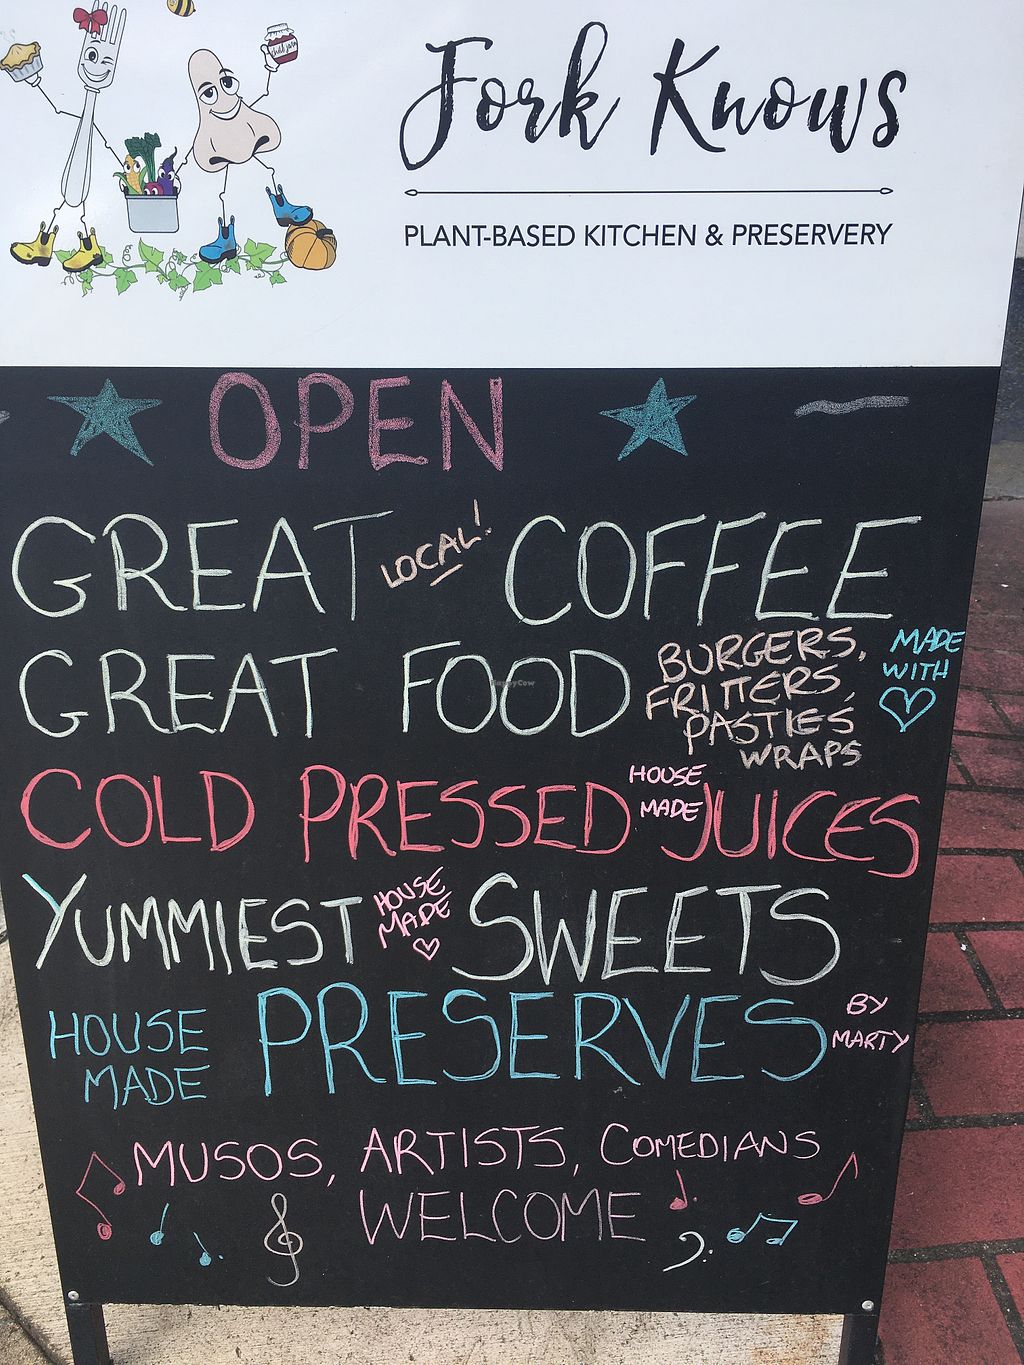 Fork Knows
PLANT-BASED KITCHEN & PRESERVERY
OPEN
GREAT LOCAL! COFFEE
GREAT FOOD
BURGERS,
FRITTERS,
PASTIES
WRAPS
MADE
WITH
COLD PRESSED HOUSE MADE JUICES
YUMMIEST HOUSE MADE SWEETS
HOUSE MADE PRESERVES BY MARTY
MUSOS, ARTISTS, COMEDIANS
WELCOME
HappyCow